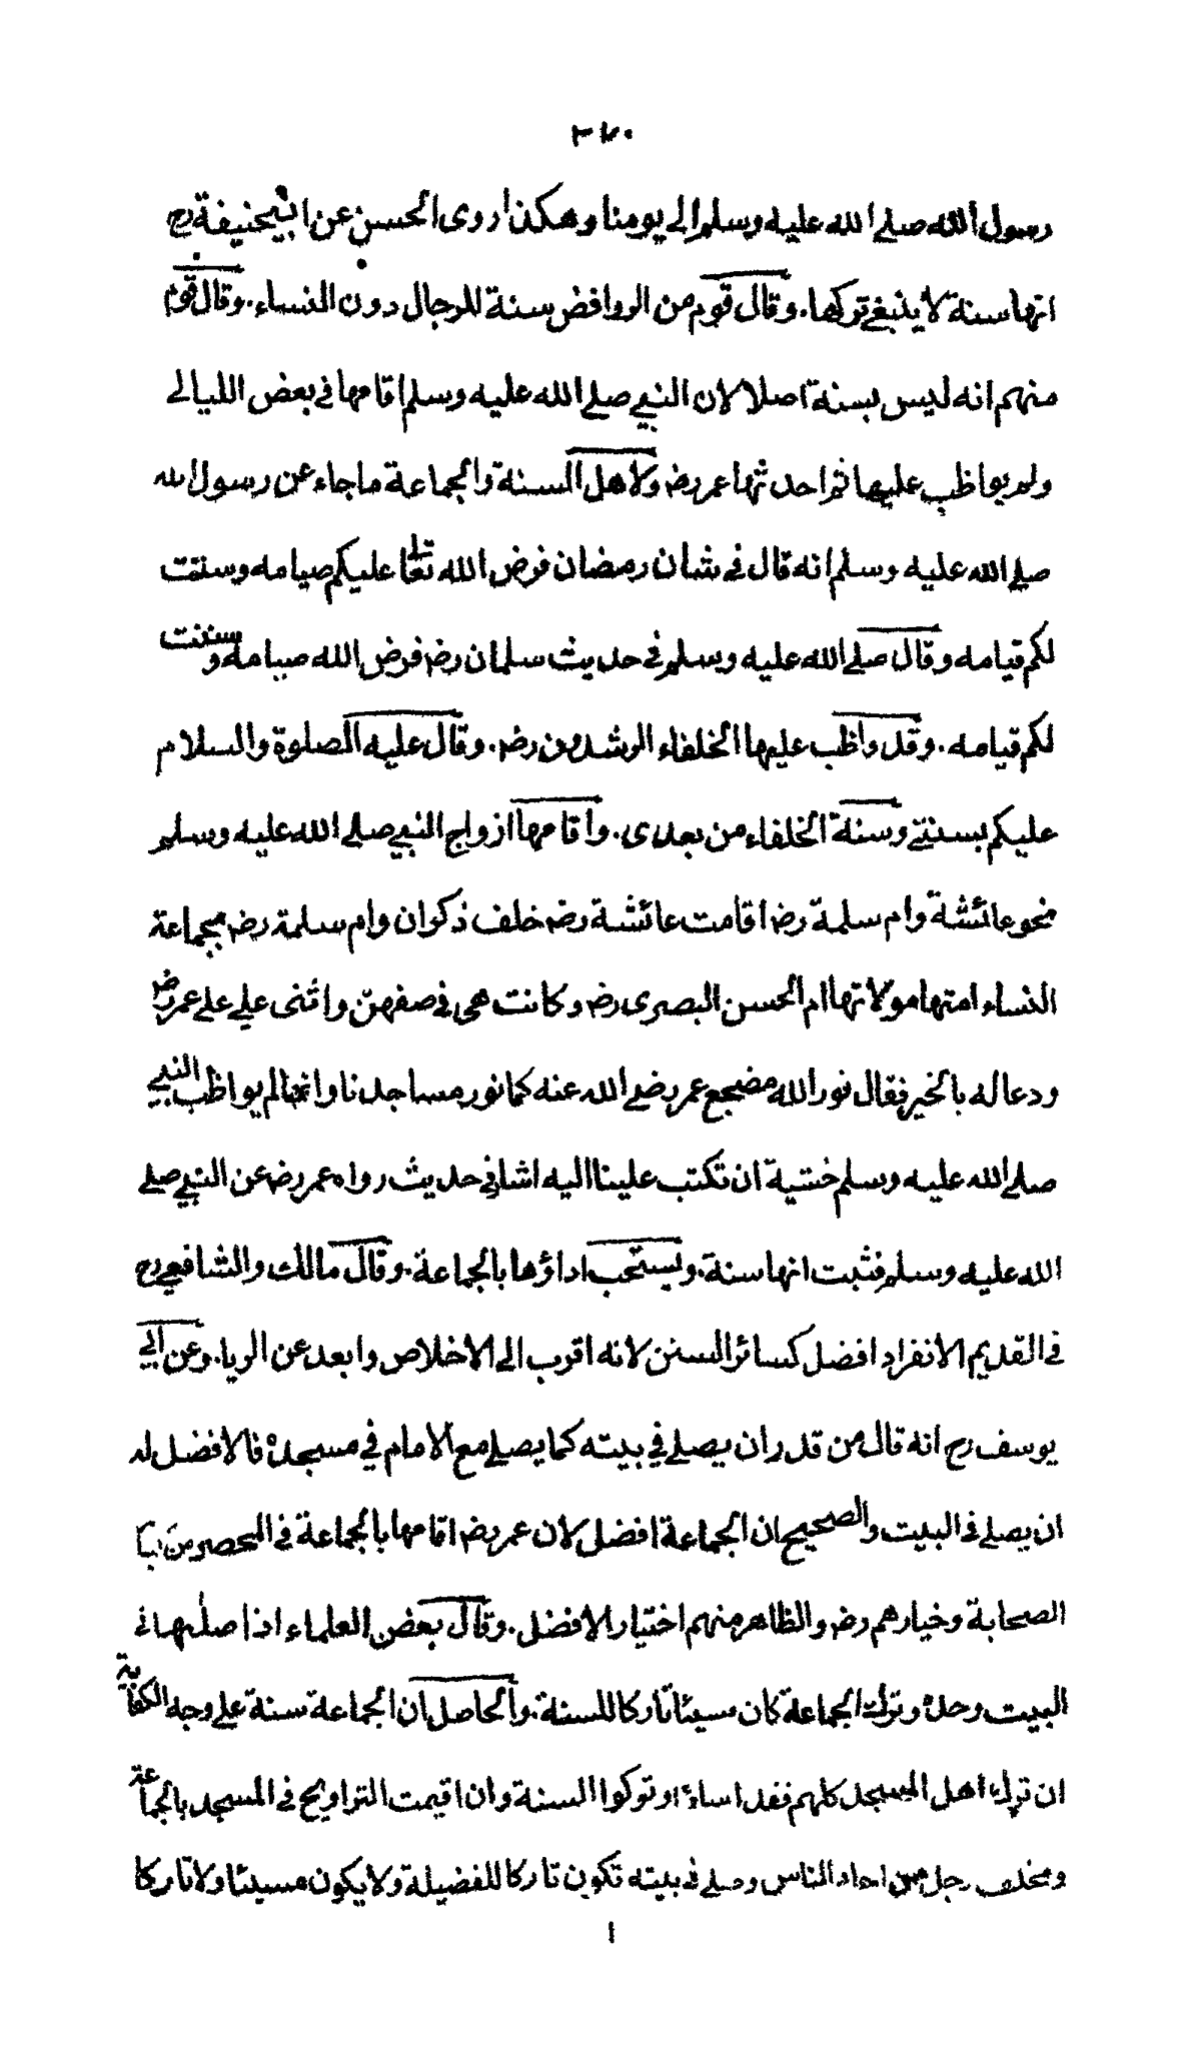 ٣٧٠
رسول الله صلے الله عليه وسلم الى يومنا وهكذا روى الحسن عن ابيحنيفة رح
انها سنة لا ينبغي تركها. وقال قوم من الروافض سنة للرجال دون النساء. وقال قوم
منهم انه ليس بسنة اصلا لان النبي صلے الله عليه وسلم اقامها في بعض الليالى
ولم يواظب عليها ثم احدثها عمر رضـ ولاهل السنة والجماعة ما جاء عن رسول الله
صلے الله عليه وسلم انه قال في شان رمضان فرض الله تعا عليكم صيامه وسننت
لكم قيامه وقال صلے الله عليه وسلم في حديث سلمان رضـ فرض الله صيامه وسننت
لكم قيامه. وقد واظب عليها الخلفاء الرشدون رضـ. وقال عليه الصلوة والسلام
عليكم بسنتي وسنة الخلفاء من بعدى. واقامها ازواج النبي صلے الله عليه وسلم
نحو عائشة وام سلمة رضـ اقامت عائشة رضـ خلف ذكوان وام سلمة رضـ بجماعة
النساء امتها مولاتها ام الحسن البصرى رضـ وكانت هى في صفهنّ واثنى علي على عمر رضـ
ودعا له بالخير فقال نور الله مضجع عمر رضي الله عنه كما نور مساجدنا وانما لم يواظب النبي
صلے الله عليه وسلم خشية ان تكتب علينا اليه اشار في حديث رواه عمر رضـ عن النبي صلے
الله عليه وسلم فثبت انها سنة. ويستحب اداؤها بالجماعة. وقال مالك والشافعي رح
في القديم الانفراد افضل كسائر السنن لانه اقرب الى الاخلاص وابعد عن الريا. وعن ابي
يوسف رح انه قال من قدر ان يصلي في بيته كما يصلي مع الامام في مسجده فالافضل له
ان يصلي في البيت والصحيح ان الجماعة افضل لان عمر رضـ اقامها بالجماعة في المحصر من
الصحابة وخيارهم رضـ والظاهر منهم اختيار الافضل. وقال بعض العلماء اذا صلٰيها في
البيت وحده وترك الجماعة كان مسيئا تاركا للسنة. والحاصل ان الجماعة سنة على وجه الكفاية
ان ترك اهل المسجد كلهم فقد اساءوا وتركوا السنة وان اقيمت التراويح في المسجد بالجماعة
وتخلف رجل من احاد الناس وصلى في بيته تكون تاركا للفضيلة ولا يكون مسيئا ولا تاركا
ا